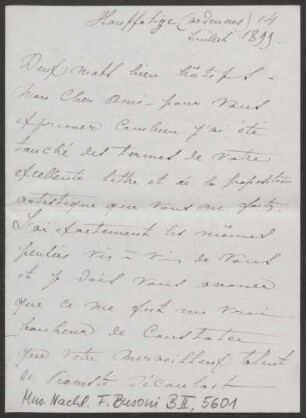 Houffalize (Ardennes) 14
Juillet 1899.
Deux mots bien hâtifs –
Mon Cher Ami – pour vous
exprimer combien j'ai été
touché des termes de votre
excellente lettre et de la proposition
artistique que vous me faites
J'ai exactement les mêmes
pensées vis à vis de vous
et je dois vous avouer
que ce me fut un vrai
bonheur de constater
que votre merveilleux talent
de Pianiste s'écartait
Mus. Nachl. F. Busoni B II, 5601